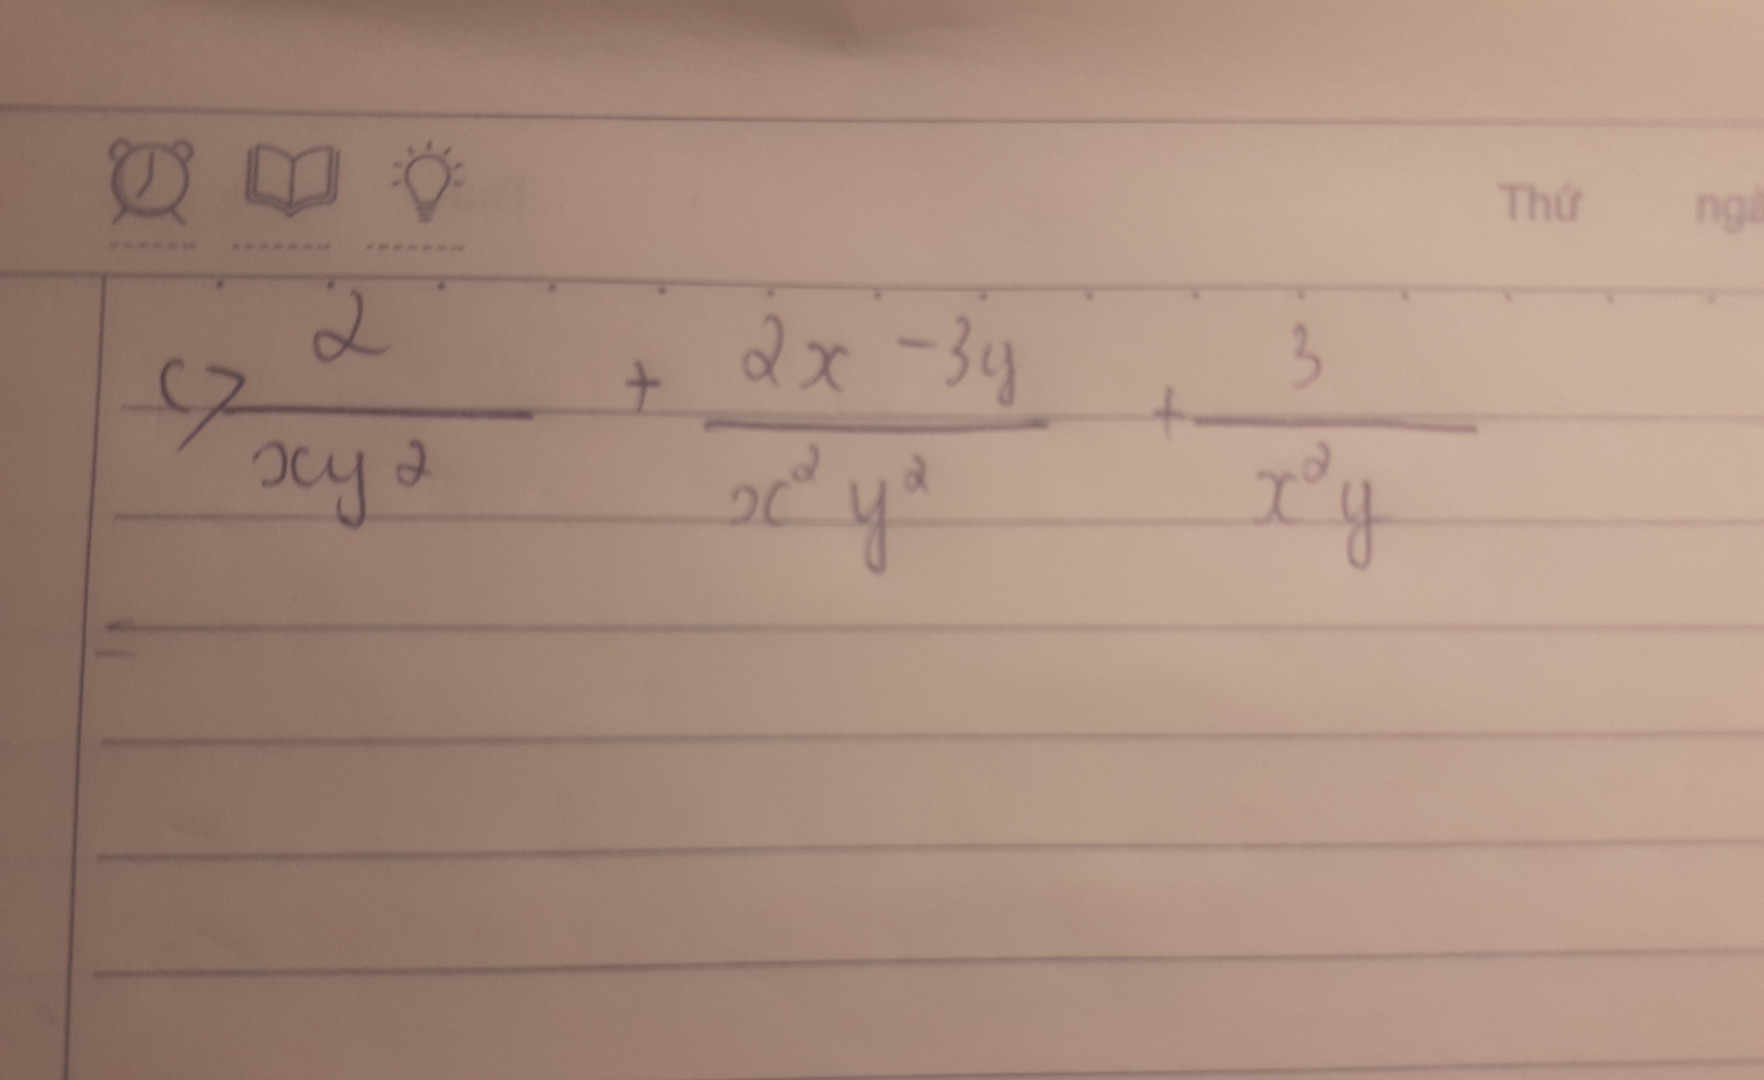 Thứ ngà
c) 2/xy² + (2x - 3y)/(x² y²) + 3/(x² y)
=